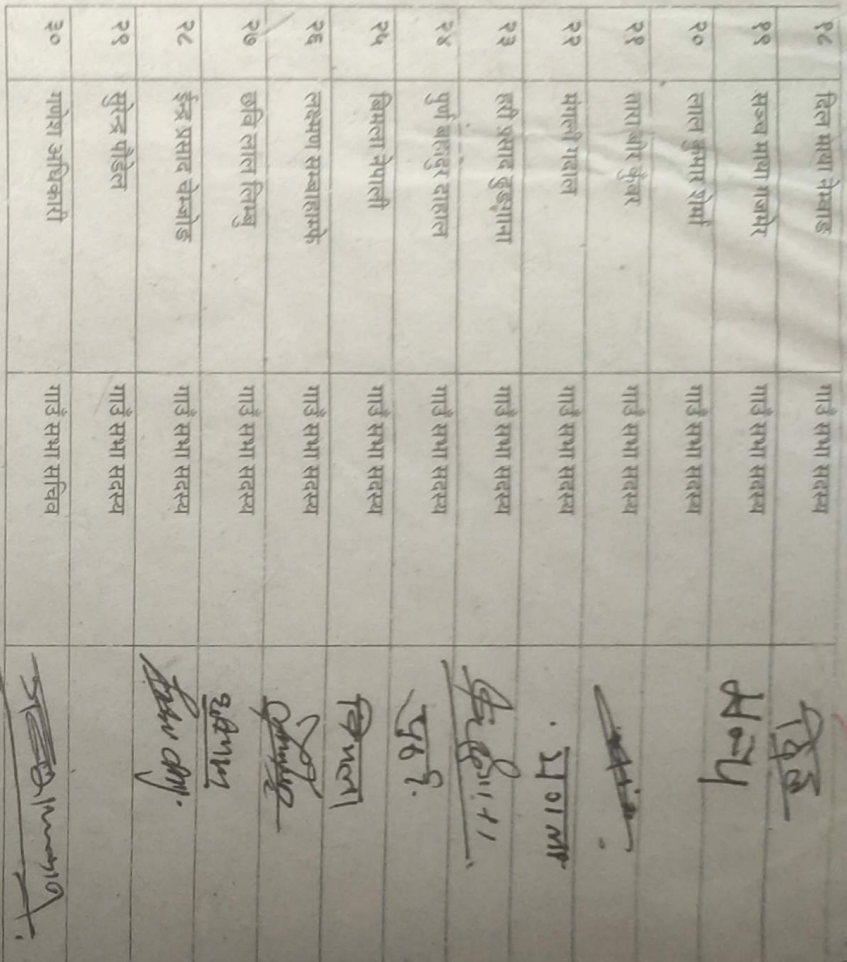 १८ दिल माया नेम्वाङ गाउँ सभा सदस्य दिल
१९ सञ्च माया गजमेर गाउँ सभा सदस्य सन्चु
२० लाल कुमार शेर्मा गाउँ सभा सदस्य
२१ तारा वीर कुंवर गाउँ सभा सदस्य
२२ मंगली गदाल गाउँ सभा सदस्य
२३ हरी प्रसाद ढुङ्गाना गाउँ सभा सदस्य
२४ पुर्ण बहादुर दाहाल गाउँ सभा सदस्य
२५ बिमला नेपाली गाउँ सभा सदस्य बिमला
२६ लक्ष्मण सम्बाहाम्फे गाउँ सभा सदस्य
२७ छवि लाल लिम्बु गाउँ सभा सदस्य
२८ ईन्द्र प्रसाद चेम्जोङ गाउँ सभा सदस्य
२९ सुरेन्द्र पौडेल गाउँ सभा सदस्य
३० गणेश अधिकारी गाउँ सभा सचिव